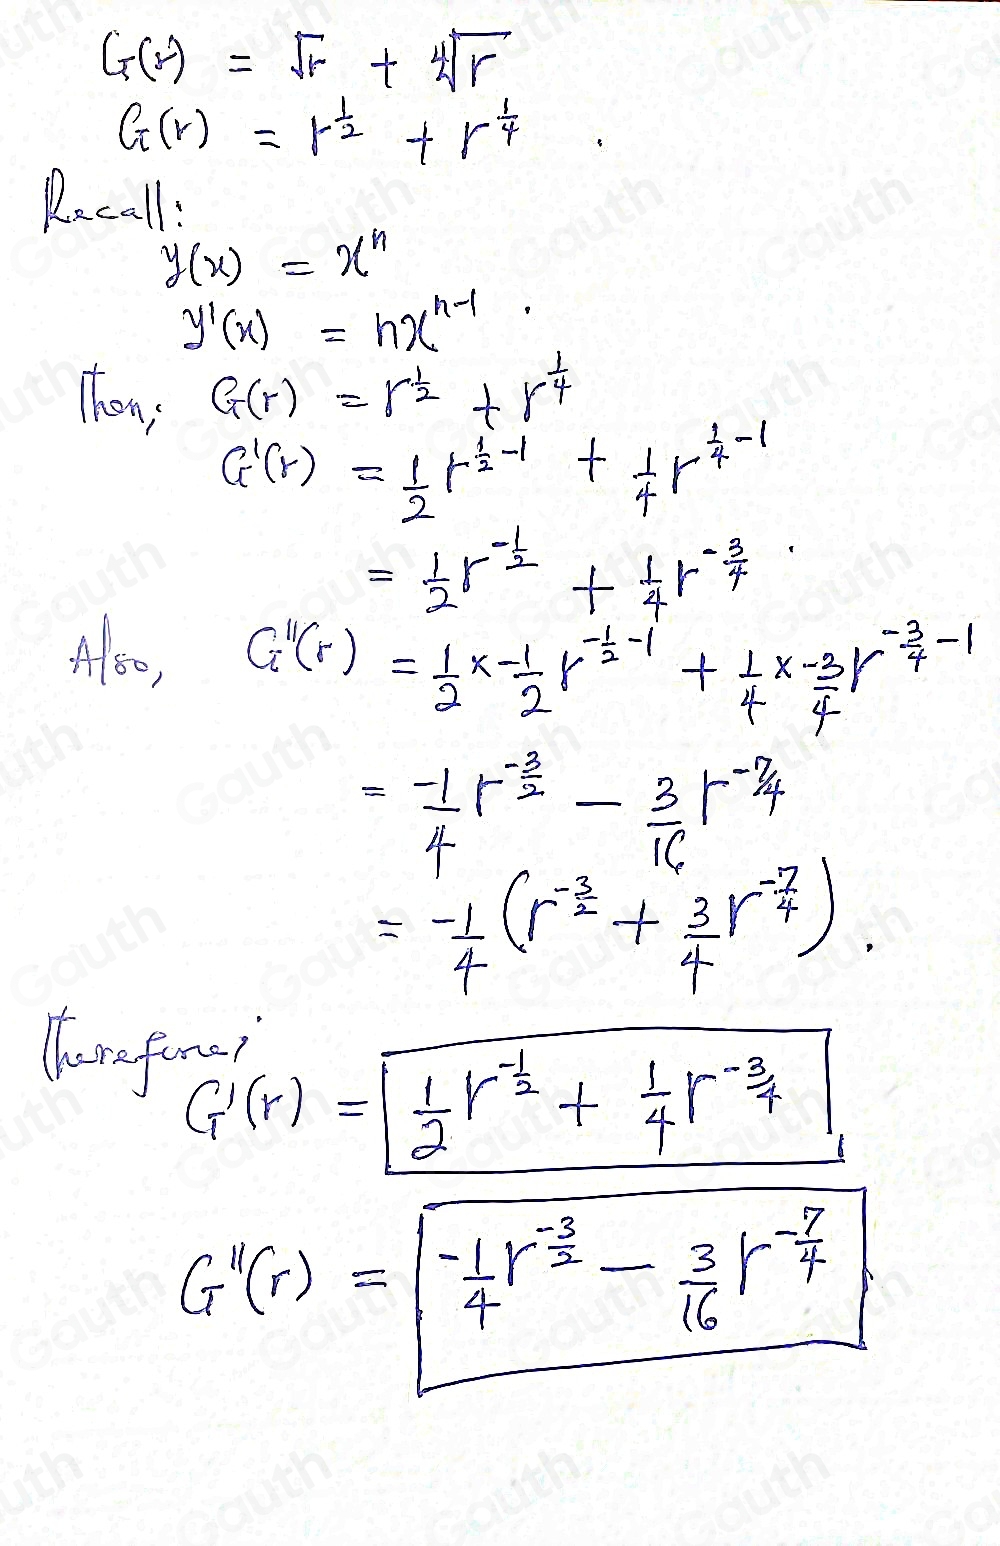 G(r) = √r + ∜r
G(r) = r^(1/2) + r^(1/4).
Recall:
y(x) = x^n
y'(x) = nx^(n-1).
Then; G(r) = r^(1/2) + r^(1/4)
G'(r) = 1/2 r^(1/2 - 1) + 1/4 r^(1/4 - 1)
= 1/2 r^(-1/2) + 1/4 r^(-3/4).
Also, G''(r) = 1/2 × -1/2 r^(-1/2 - 1) + 1/4 × -3/4 r^(-3/4 - 1)
= -1/4 r^(-3/2) - 3/16 r^(-7/4)
= -1/4 (r^(-3/2) + 3/4 r^(-7/4)).
Therefore;
G'(r) = 1/2 r^(-1/2) + 1/4 r^(-3/4),
G''(r) = -1/4 r^(-3/2) - 3/16 r^(-7/4)
Gauth